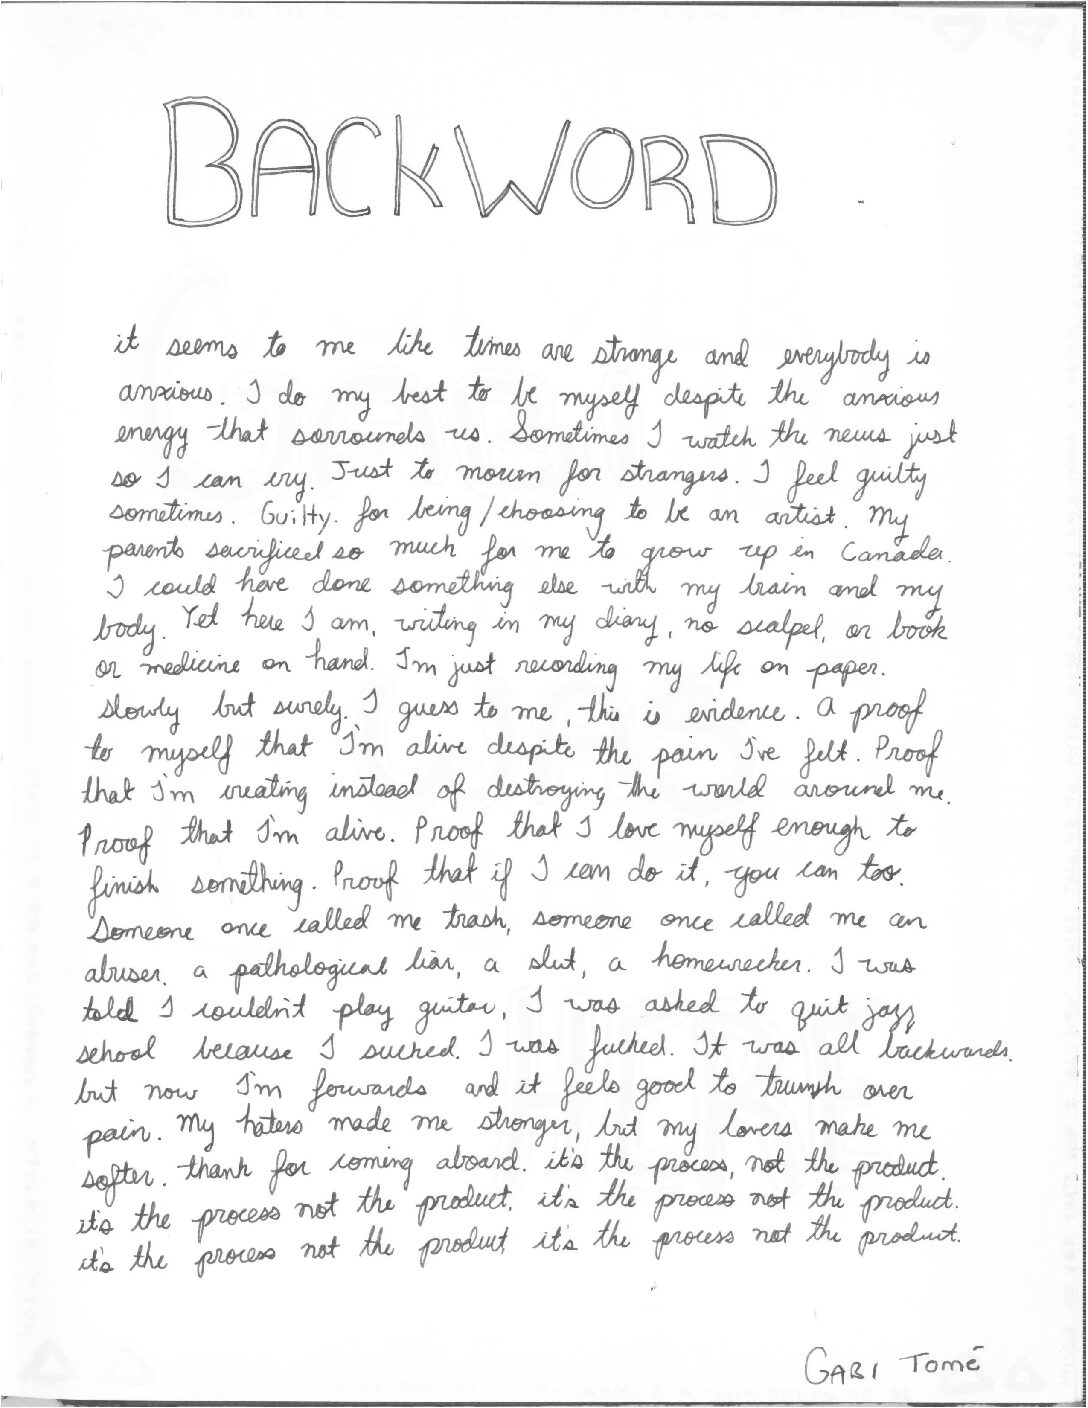 BACKWORD
it seems to me like times are strange and everybody is
anxious. I do my best to be myself despite the anxious
energy that sorrounds us. Sometimes I watch the news just
so I can cry. Just to mourn for strangers. I feel guilty
sometimes. Guilty. for being/choosing to be an artist. My
parents sacrificed so much for me to grow up in Canada.
I could have done something else with my brain and my
body. Yet here I am, writing in my diary, no scalpel, or book
or medicine on hand. I'm just recording my life on paper.
slowly but surely. I guess to me, this is evidence. A proof
to myself that I'm alive despite the pain I've felt. Proof
that I'm creating instead of destroying the world around me.
Proof that I'm alive. Proof that I love myself enough to
finish something. Proof that if I can do it, you can too.
Someone once called me trash, someone once called me an
abuser, a pathological liar, a slut, a homewrecker. I was
told I couldn't play guitar, I was asked to quit jazz
school because I sucked. I was fucked. It was all backwards.
but now I'm forwards and it feels good to trumph over
pain. My haters made me stronger, but my lovers make me
softer. thank for coming aboard. it's the process, not the product.
it's the process not the product. it's the process not the product.
it's the process not the product it's the process not the product.
GABI TOMÉ